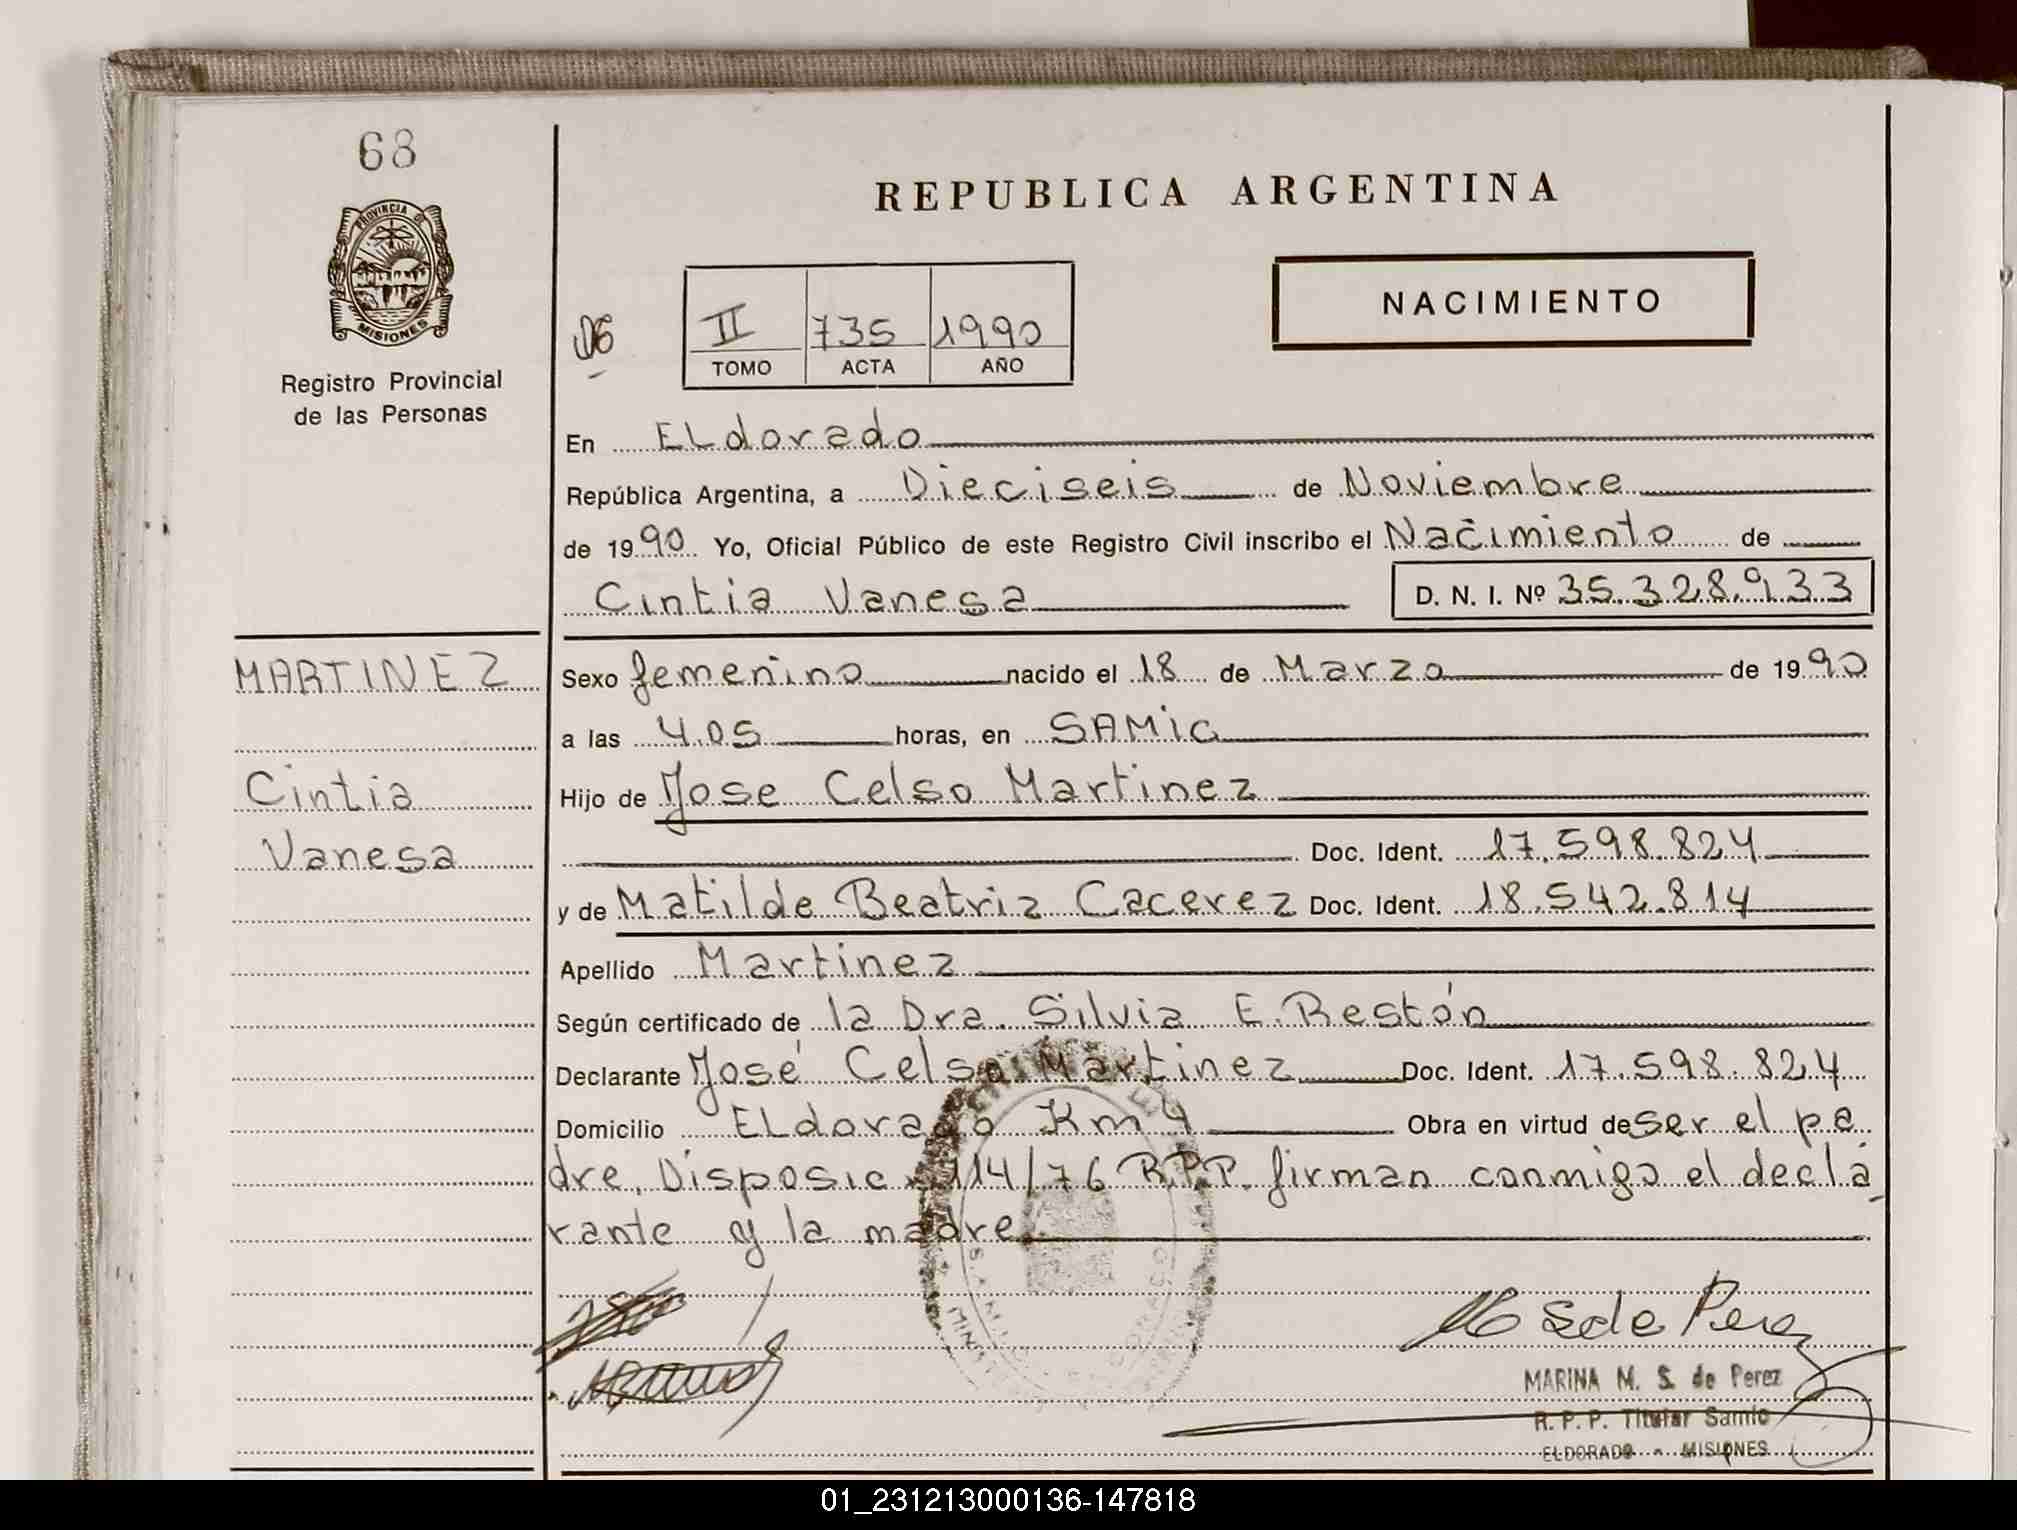 68
PROVINCIA DE
MISIONES
Registro Provincial
de las Personas
REPUBLICA ARGENTINA
NACIMIENTO
II 735 1990
TOMO ACTA AÑO
En ELdorado
República Argentina, a Dieciseis de Noviembre
de 1990 Yo, Oficial Público de este Registro Civil inscribo el Nacimiento de
Cintia Vanesa D. N. I. Nº 35.328.933
MARTINEZ
Cintia
Vanesa
Sexo femenino nacido el 18 de Marzo de 1990
a las 4.05 horas, en SAMIC
Hijo de Jose Celso Martinez
Doc. Ident. 17.598.824
y de Matilde Beatriz Cacerez Doc. Ident. 18.542.814
Apellido Martinez
Según certificado de la Dra. Silvia E. Restón
Declarante José Celso Martinez Doc. Ident. 17.598.824
Domicilio ELdorado Km 4 Obra en virtud de ser el pa
dre. Disposic. 114/76 R.P.P. firman conmigo el decla
rante y la madre.
M S de Perez
MARINA M. S. de Perez
R. P. P. Titular Samic
ELDORADO - MISIONES
01_231213000136-147818